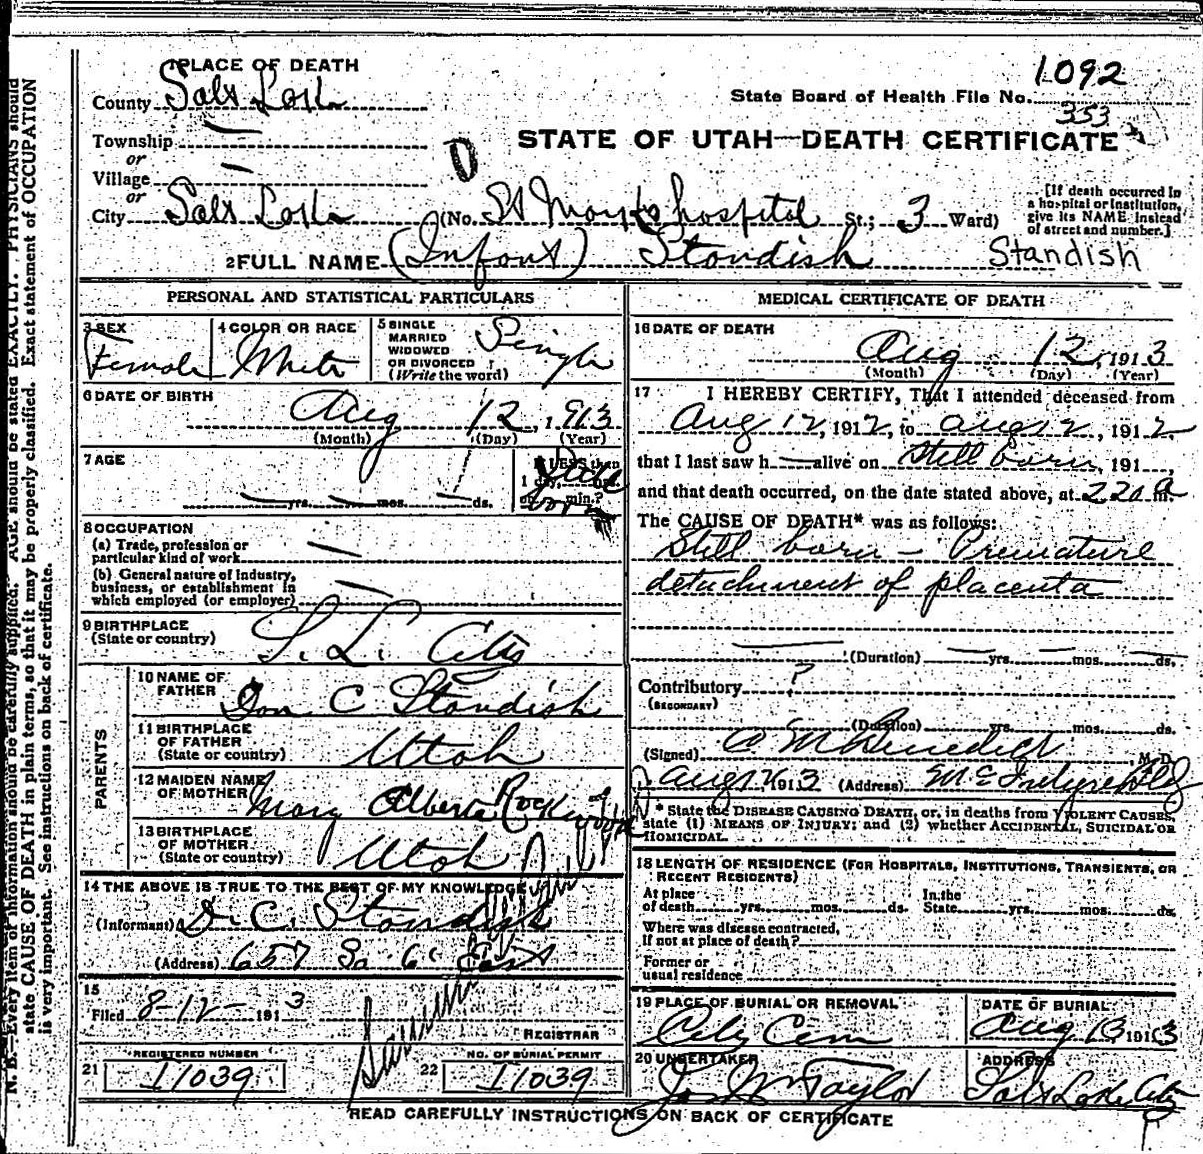 1 PLACE OF DEATH
1092
County Salt Lake
State Board of Health File No.
353
Township —
STATE OF UTAH—DEATH CERTIFICATE
or
Village —
0
or
City Salt Lake (No. St Marks hospital St.; 3 Ward)
[If death occurred in
a hospital or institution,
give its NAME instead
of street and number.]
2 FULL NAME (Infant) Standish Standish
PERSONAL AND STATISTICAL PARTICULARS
3 SEX
Female
4 COLOR OR RACE
White
5 SINGLE
MARRIED
WIDOWED
OR DIVORCED
(Write the word)
Single
6 DATE OF BIRTH
Aug 12, 1913
(Month) (Day) (Year)
7 AGE
If LESS than
1 day, or
— yrs. — mos. ds. or min.?
8 OCCUPATION
(a) Trade, profession or
particular kind of work —
(b) General nature of industry,
business, or establishment in
which employed (or employer) —
9 BIRTHPLACE
(State or country)
S. L. City
PARENTS
10 NAME OF
FATHER
Don C Standish
11 BIRTHPLACE
OF FATHER
(State or country)
Utah
12 MAIDEN NAME
OF MOTHER
Mary Alberta Rockwood
13 BIRTHPLACE
OF MOTHER
(State or country)
Utah
14 THE ABOVE IS TRUE TO THE BEST OF MY KNOWLEDGE
(Informant) D. C. Standish
(Address) 657 So 6" East
15
Filed 8-12- 1913
REGISTRAR
REGISTERED NUMBER
21 I1039
NO. OF BURIAL PERMIT
22 I1039
MEDICAL CERTIFICATE OF DEATH
16 DATE OF DEATH
Aug 12, 1913
(Month) (Day) (Year)
17 I HEREBY CERTIFY, That I attended deceased from
Aug 12, 1912, to Aug 12, 1912,
that I last saw h — alive on Still born, 191 ,
and that death occurred, on the date stated above, at 220 a m.
The CAUSE OF DEATH* was as follows:
Still born - Premature
detachment of placenta
— (Duration) — yrs. — mos. — ds.
Contributory ?
(SECONDARY)
(Duration) yrs. mos. ds.
(Signed) C M Benedict, M.D.
Aug 12 1913 (Address) McIntyre Bldg
* State the DISEASE CAUSING DEATH, or, in deaths from VIOLENT CAUSES,
state (1) MEANS OF INJURY; and (2) whether ACCIDENTAL, SUICIDAL OR
HOMICIDAL.
18 LENGTH OF RESIDENCE (FOR HOSPITALS, INSTITUTIONS, TRANSIENTS, OR
RECENT RESIDENTS)
At place In the
of death yrs. mos. ds. State yrs. mos. ds.
Where was disease contracted,
If not at place of death?
Former or
usual residence
19 PLACE OF BURIAL OR REMOVAL
City Cem
DATE OF BURIAL
Aug 13 1913
20 UNDERTAKER
Jos Wm Taylor
ADDRESS
Salt Lake City
READ CAREFULLY INSTRUCTIONS ON BACK OF CERTIFICATE
N. B.—Every item of information should be carefully supplied. AGE should be stated EXACTLY. PHYSICIANS should
state CAUSE OF DEATH in plain terms, so that it may be properly classified. Exact statement of OCCUPATION
is very important. See instructions on back of certificate.